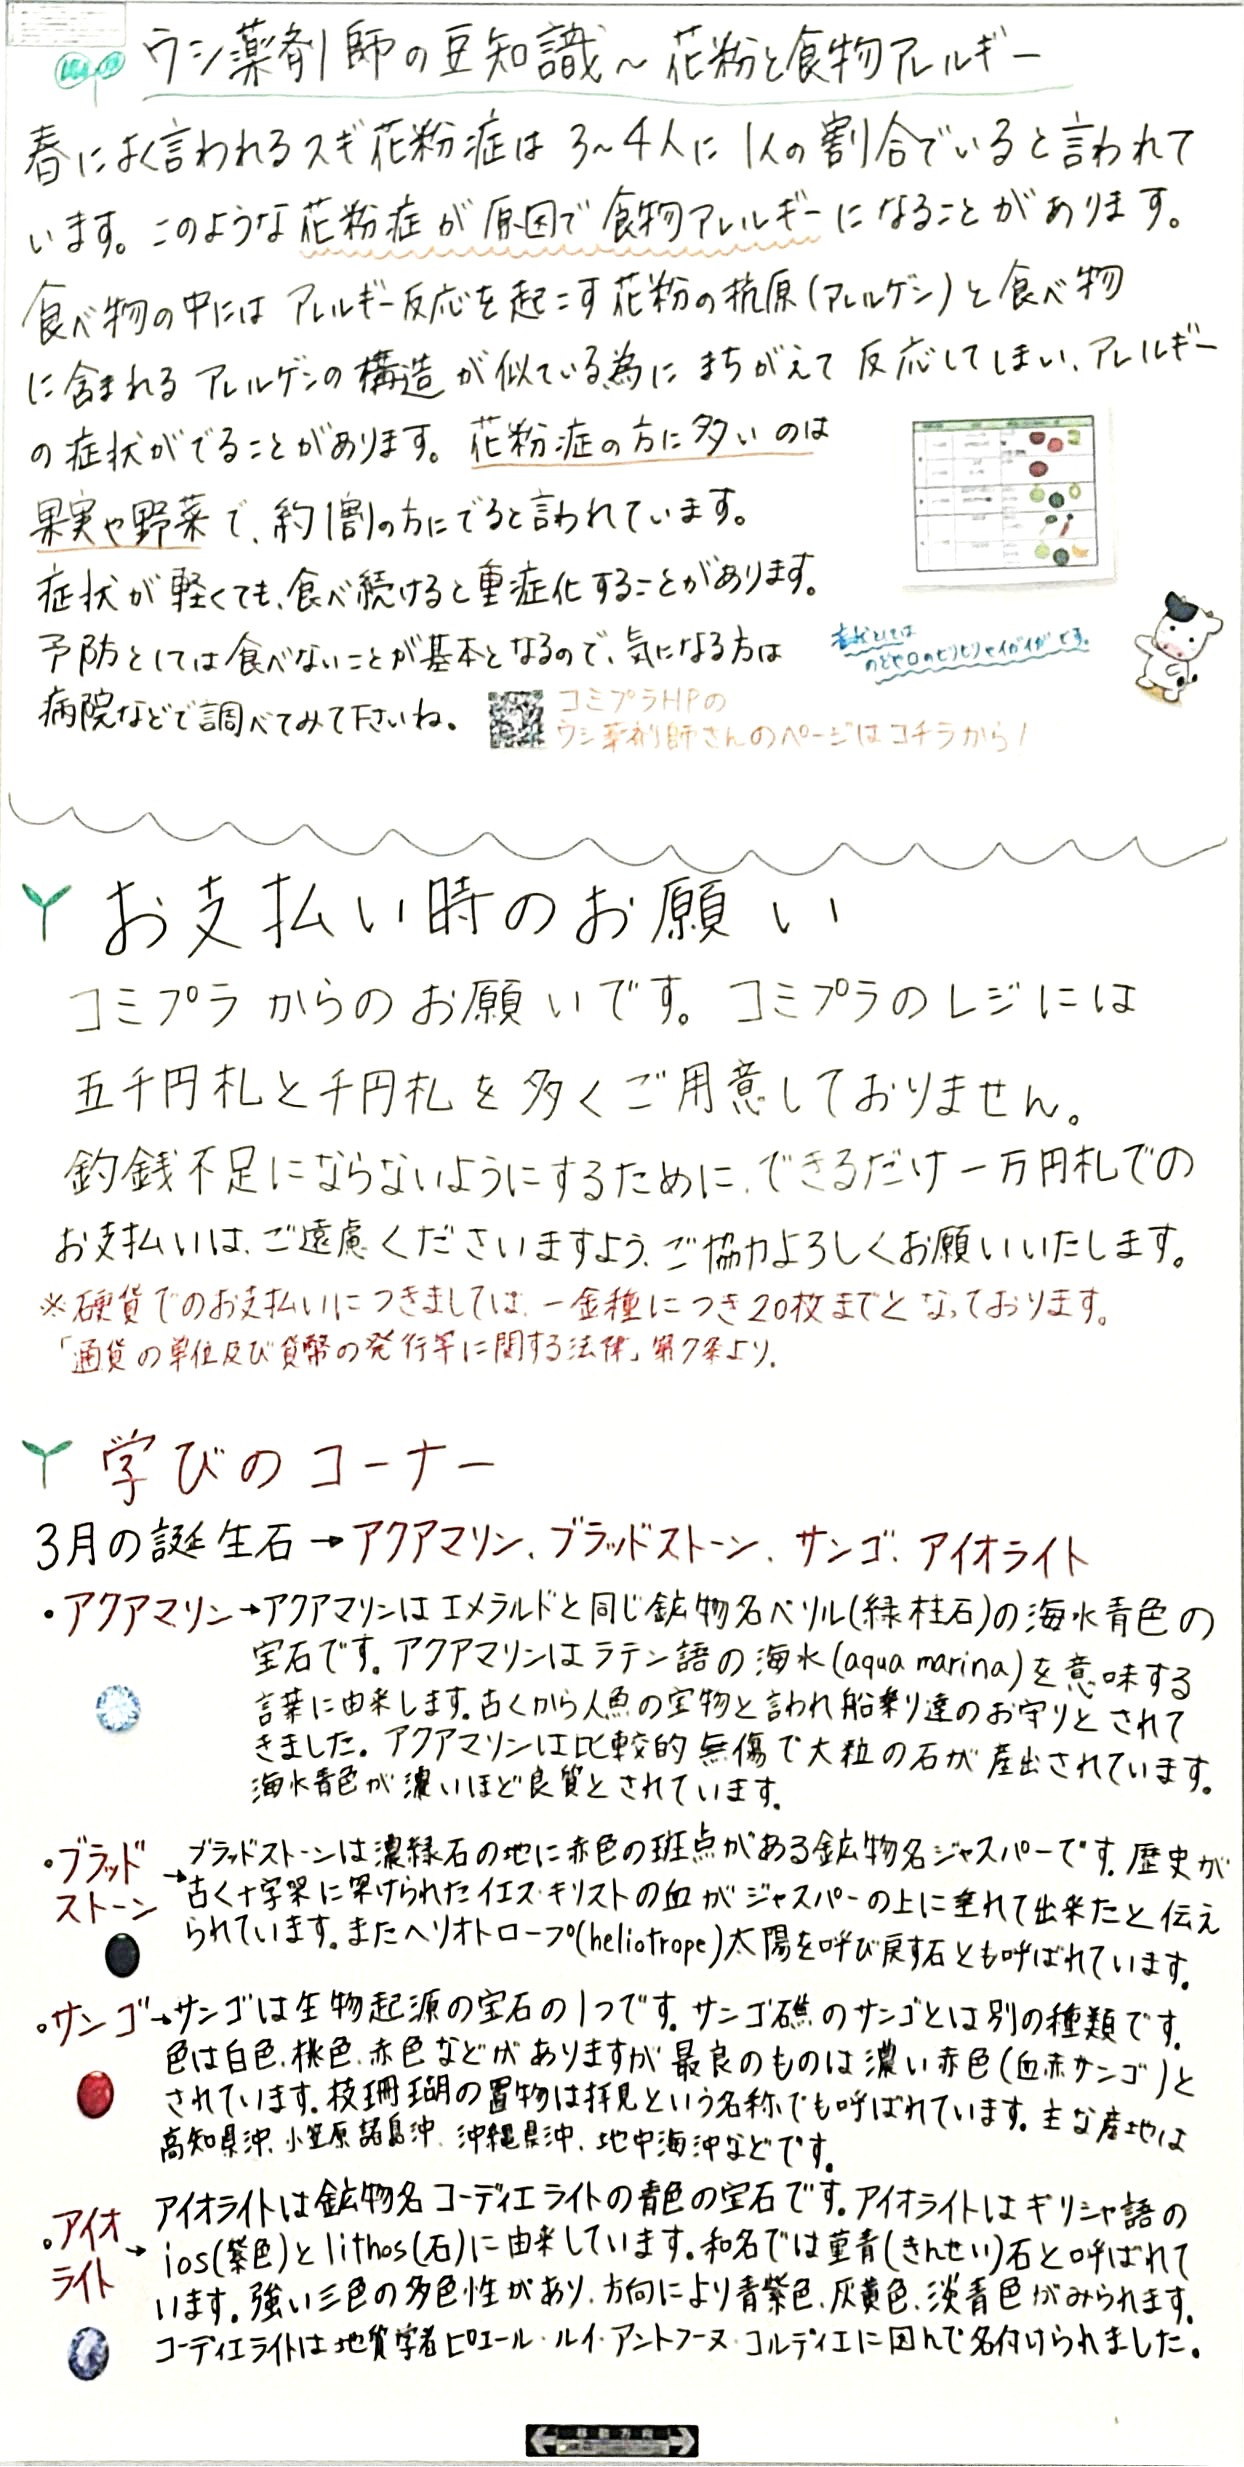 ウシ薬剤師の豆知識～花粉と食物アレルギー
春によく言われるスギ花粉症は3～4人に1人の割合でいると言われて
います。このような花粉症が原因で食物アレルギーになることがあります。
食べ物の中にはアレルギー反応を起こす花粉の抗原(アレルゲン)と食べ物
に含まれるアレルゲンの構造が似ている為にまちがえて反応してしまい、アレルギー
の症状がでることがあります。花粉症の方に多いのは
果実や野菜で、約1割の方にでると言われています。
症状が軽くても、食べ続けると重症化することがあります。
予防としては食べないことが基本となるので、気になる方は
病院などで調べてみて下さいね。
症状としては
のどや口のピリピリやイガイガです。
コミプラHPの
ウシ薬剤師さんのページはコチラから!
お支払い時のお願い
コミプラからのお願いです。コミプラのレジには
五千円札と千円札を多くご用意しておりません。
釣銭不足にならないようにするために、できるだけ一万円札での
お支払いは、ご遠慮くださいますよう、ご協力よろしくお願いいたします。
※硬貨でのお支払いにつきましては、一金種につき20枚までとなっております。
「通貨の単位及び貨幣の発行等に関する法律」第7条より.
学びのコーナー
3月の誕生石→アクアマリン、ブラッドストーン、サンゴ、アイオライト
・アクアマリン→アクアマリンはエメラルドと同じ鉱物名ベリル(緑柱石)の海水青色の
宝石です。アクアマリンはラテン語の海水(aqua marina)を意味する
言葉に由来します。古くから人魚の宝物と言われ船乗り達のお守りとされて
きました。アクアマリンは比較的無傷で大粒の石が産出されています。
海水青色が濃いほど良質とされています。
・ブラッドストーン→ブラッドストーンは濃緑石の地に赤色の斑点がある鉱物名ジャスパーです。歴史が
古く十字架に架けられたイエス・キリストの血がジャスパーの上に垂れて出来たと伝え
られています。またヘリオトロープ(heliotrope)太陽を呼び戻す石とも呼ばれています。
・サンゴ→サンゴは生物起源の宝石の1つです。サンゴ礁のサンゴとは別の種類です。
色は白色、桃色、赤色などがありますが最良のものは濃い赤色(血赤サンゴ)と
されています。枝珊瑚の置物は拝見という名称でも呼ばれています。主な産地は
高知県沖、小笠原諸島沖、沖縄県沖、地中海沖などです。
・アイオライト→アイオライトは鉱物名コーディエライトの青色の宝石です。アイオライトはギリシャ語の
ios(紫色)とlithos(石)に由来しています。和名では菫青(きんせい)石と呼ばれて
います。強い三色の多色性があり、方向により青紫色、灰黄色、淡青色がみられます。
コーディエライトは地質学者ピエール・ルイ・アントフーヌ・コルディエに因んで名付けられました。
移動方向